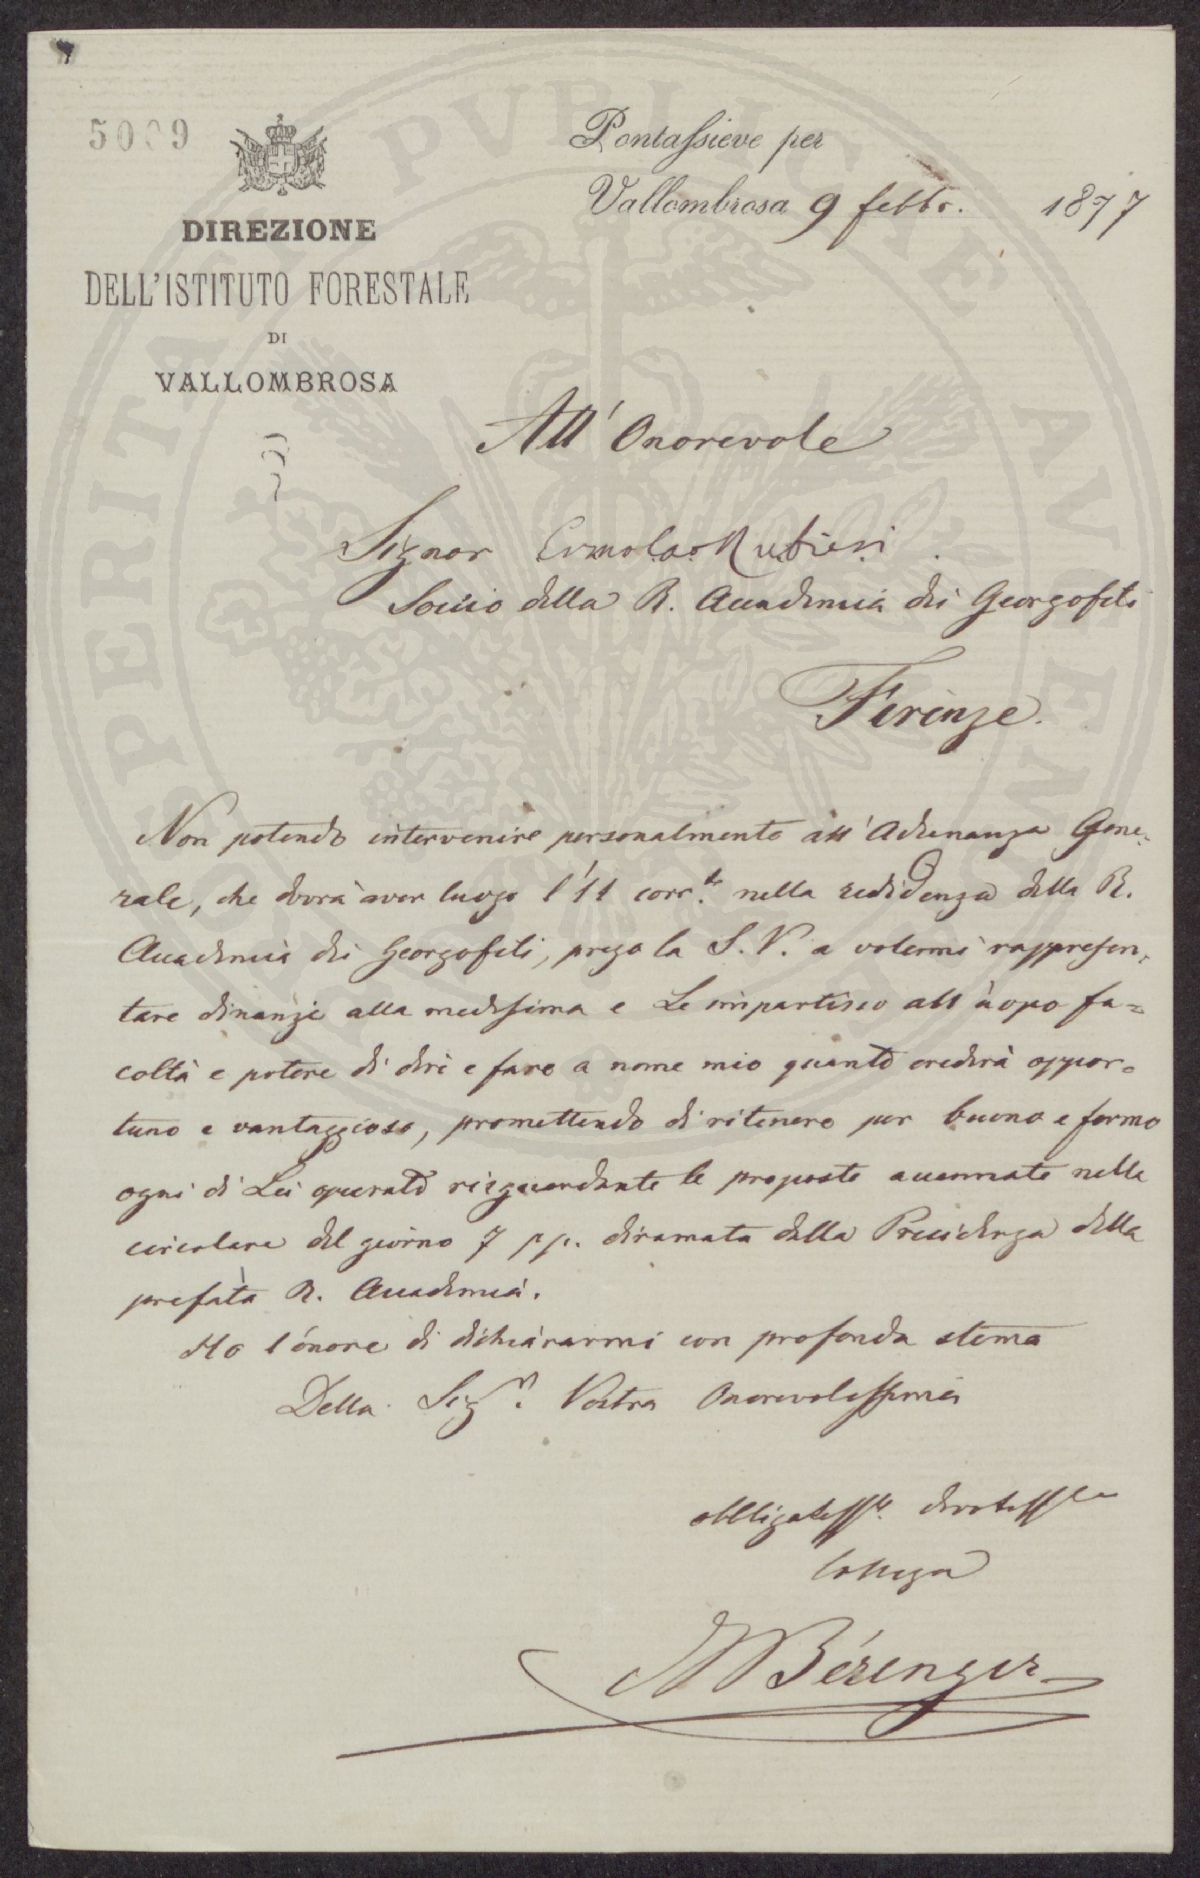 5009
DIREZIONE
DELL'ISTITUTO FORESTALE
DI
VALLOMBROSA
Pontassieve per
Vallombrosa 9 febbr. 1877
All' Onorevole
Signor Ermolao Rubieri
Socio della R. Accademia dei Georgofili
Firenze.
Non potendo intervenire personalmente all'Adunanza Gene-
rale, che dovrà aver luogo l'11 corr.te nella residenza della R.
Accademia dei Georgofili, prego la S. V. a volermi rappresen-
tare dinanzi alla medesima e Le impartisco all'uopo fa=
coltà e potere di dire e fare a nome mio quanto crederà oppor=
tuno e vantaggioso, promettendo di ritenere per buono e fermo
ogni di Lei operato risguardante le proposte accennate nella
circolare del giorno 7 pp. diramata dalla Presidenza della
prefata R. Accademia.
Ho l'onore di dichiararmi con profonda stima
Della Sig. Vostra Onorevolissima
obbligatiss. devotiss
Collega
Bérenger
PROSPERITATI PVBLICAE AVGENDAE